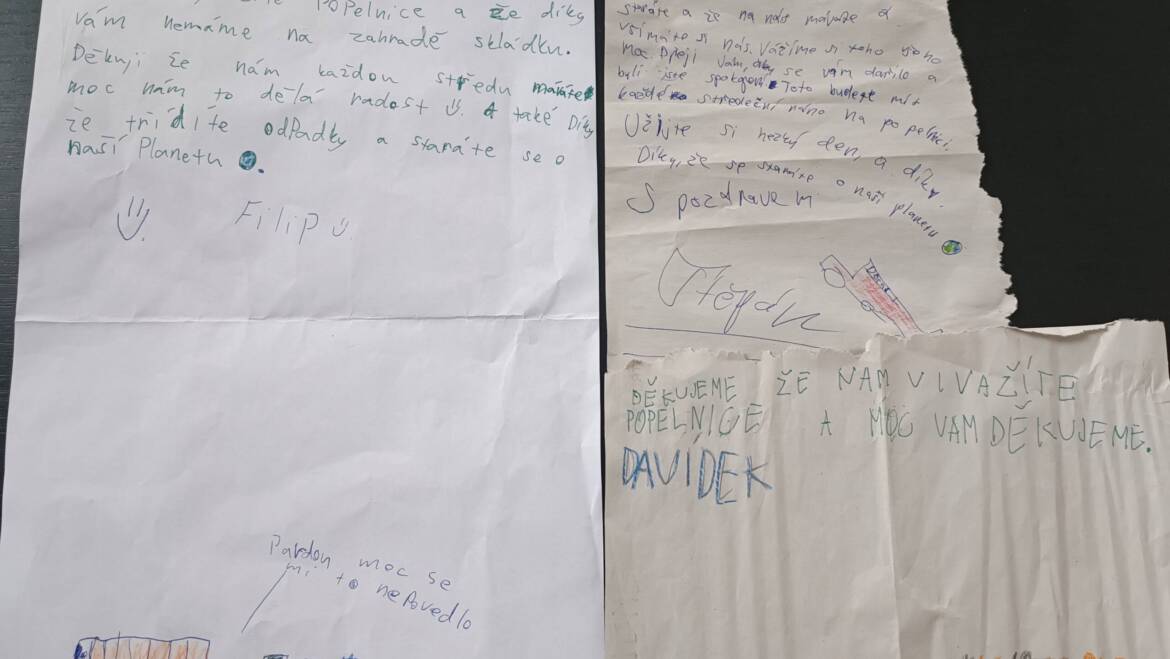 Popelnice a že díky
vám nemáme na zahradě skládku.
Děkuji že nám každou středu máváte
moc nám to dělá radost A také Díky
že třídíte odpadky a staráte se o
naší Planetu
Filip
Pardon moc se
mi to nePovedlo
staráte a že na nás máváte a
všímáte si nás. Vážíme si toho
moc. Přeji vám, aby se vám dařilo a
byli jste spokojení Toto budete mít
každé středeční ráno na popelnici.
Užijte si hezký den, a díky.
Díky, že se staráte o naší planetu
S pozdravem
Štěpán
DĚKUJEME ŽE NAM VIVAŽÍTE
POPELNICE A MOC VAM DĚKUJEME.
DAVÍDEK